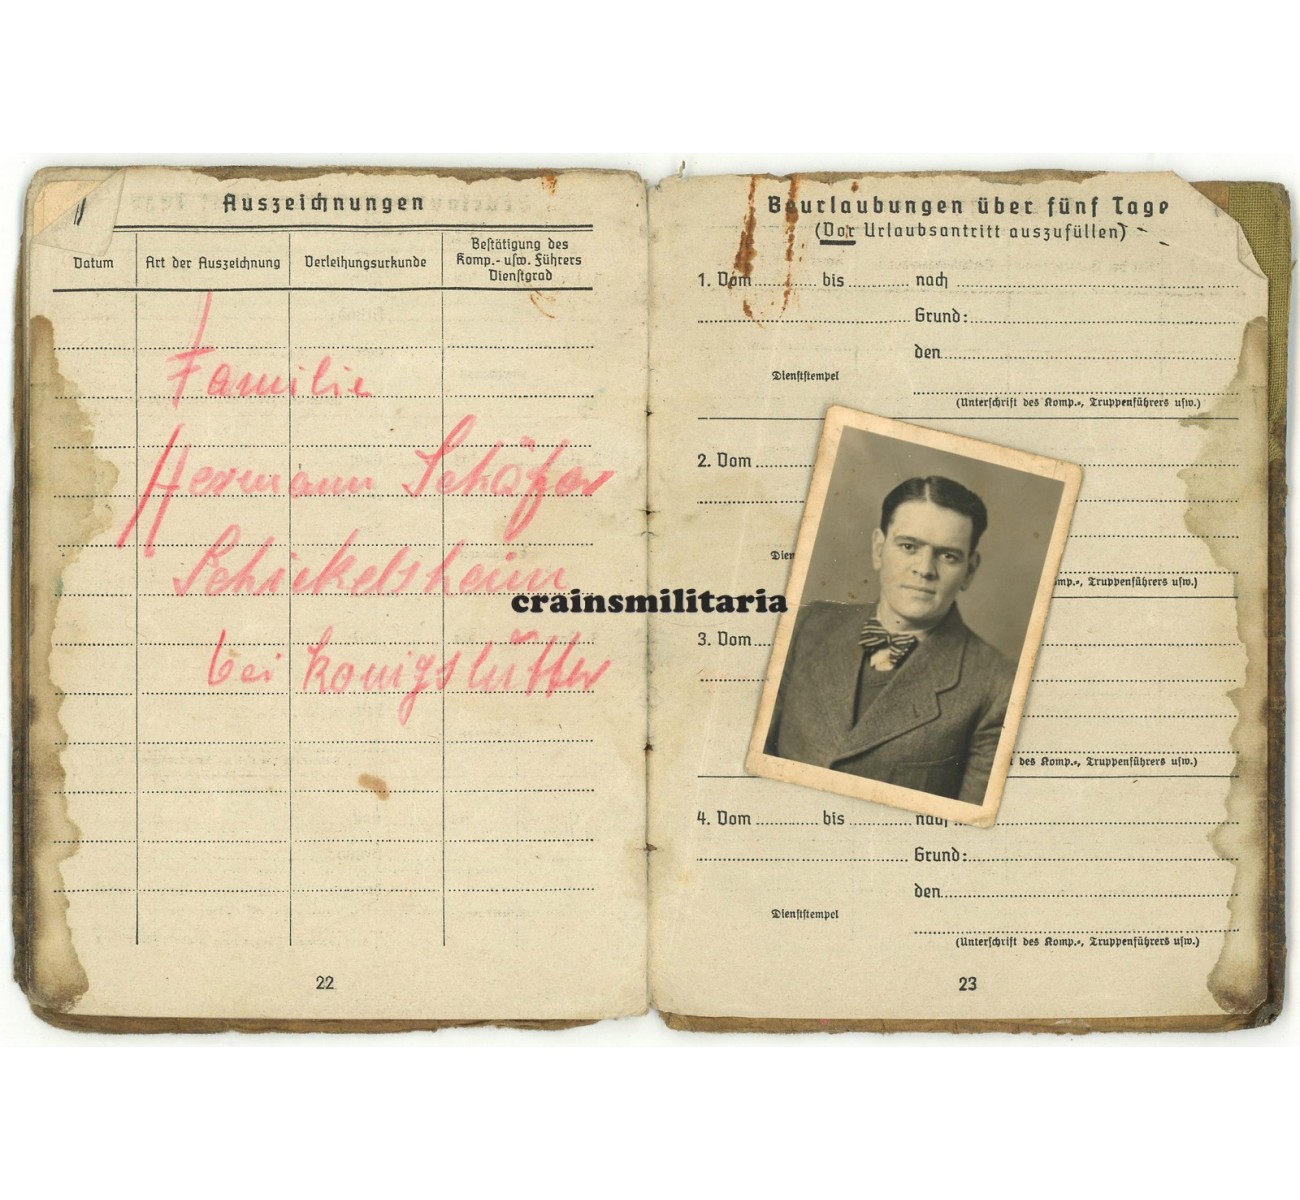 Auszeichnungen
Datum
Art der Auszeichnung
Verleihungsurkunde
Bestätigung des
Komp.- usw. Führers
Dienstgrad
Familie
Hermann Schäfer
Schickelsheim
bei Königslutter
22
Beurlaubungen über fünf Tage
(Vor Urlaubsantritt auszufüllen)
1. Vom bis nach
Grund:
den
Dienststempel
(Unterschrift des Komp.-, Truppenführers usw.)
2. Vom
Truppenführers usw.)
crainsmilitaria
3. Vom
des Komp.-, Truppenführers usw.)
4. Vom bis nach
Grund:
den
Dienststempel
(Unterschrift des Komp.-, Truppenführers usw.)
23